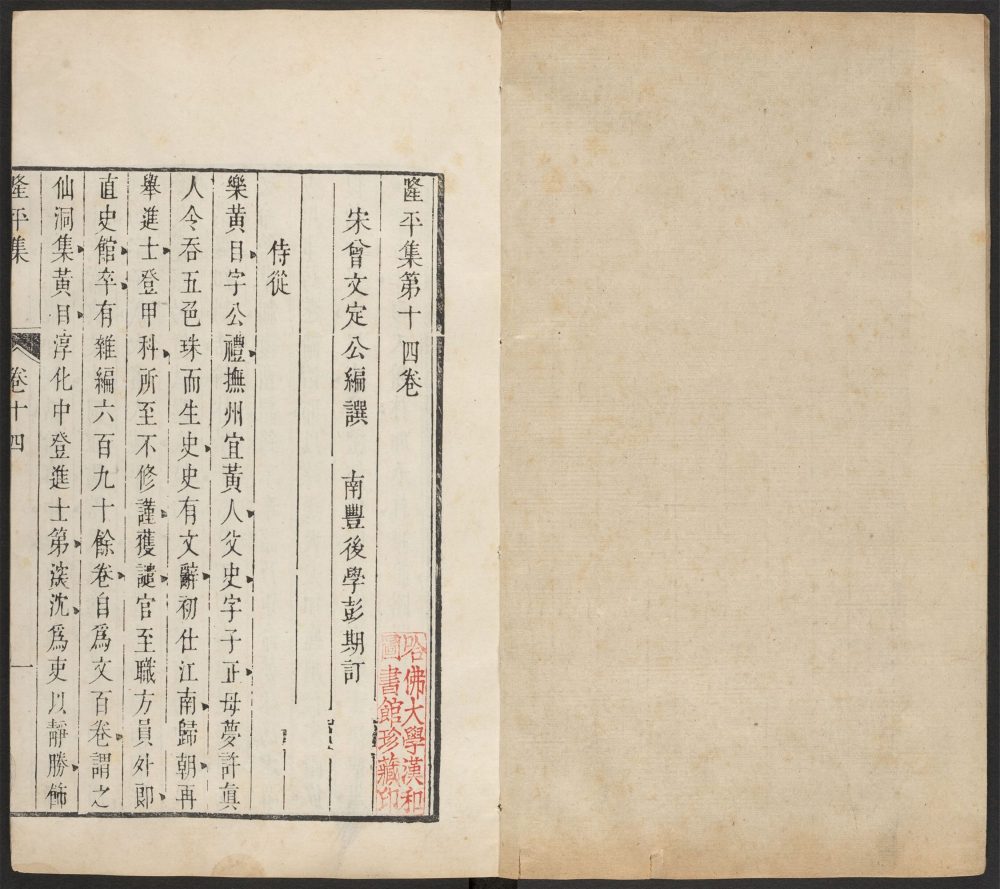 隆平集第十四卷
宋曾文定公編譔 南豐後學彭期訂
侍從
樂黃目字公禮撫州宜黃人父史字子正母夢許真
人令吞五色珠而生史史有文辭初仕江南歸朝再
舉進士登甲科所至不修謹獲譴官至職方員外郎
直史館卒有雜編六百九十餘卷自為文百卷謂之
仙洞集黃目淳化中登進士第淡沈為吏以靜勝飾
隆平集 卷十四 一
哈佛大學漢和
圖書館珍藏印